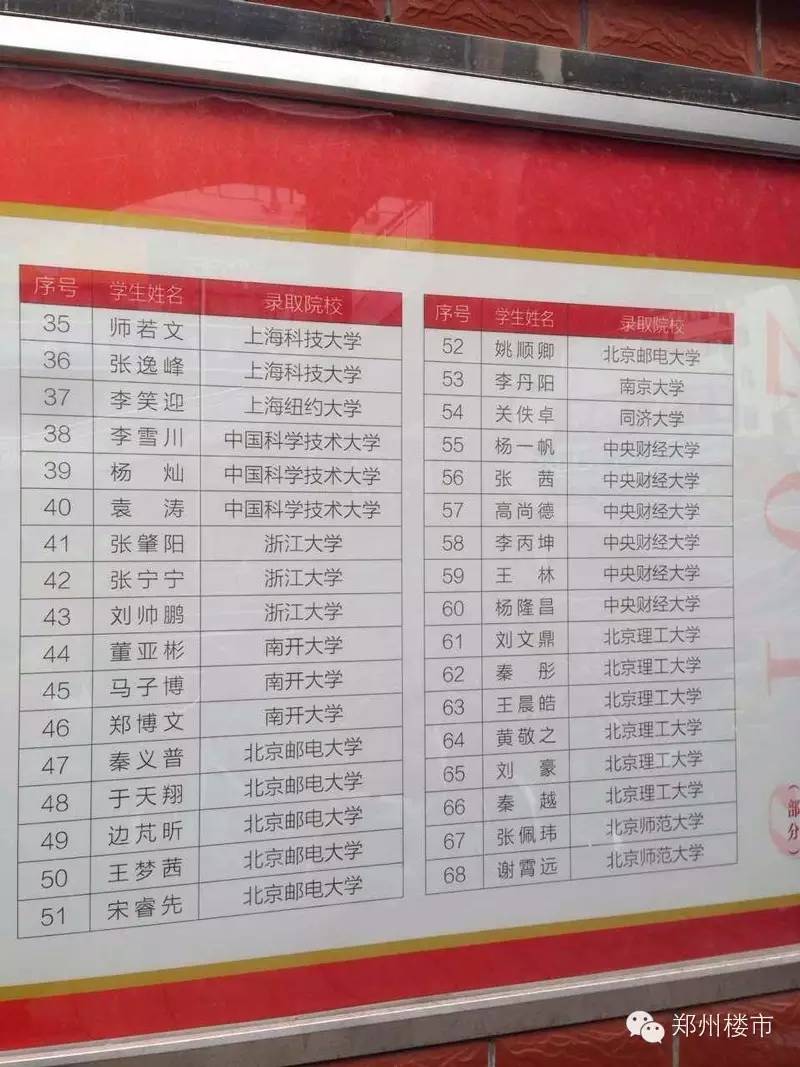 序号 学生姓名 录取院校
35 师若文 上海科技大学
36 张逸峰 上海科技大学
37 李笑迎 上海纽约大学
38 李雪川 中国科学技术大学
39 杨灿 中国科学技术大学
40 袁涛 中国科学技术大学
41 张肇阳 浙江大学
42 张宁宁 浙江大学
43 刘帅鹏 浙江大学
44 董亚彬 南开大学
45 马子博 南开大学
46 郑博文 南开大学
47 秦义普 北京邮电大学
48 于天翔 北京邮电大学
49 边芃昕 北京邮电大学
50 王梦茜 北京邮电大学
51 宋睿先 北京邮电大学
序号 学生姓名 录取院校
52 姚顺卿 北京邮电大学
53 李丹阳 南京大学
54 关佚卓 同济大学
55 杨一帆 中央财经大学
56 张茜 中央财经大学
57 高尚德 中央财经大学
58 李丙坤 中央财经大学
59 王林 中央财经大学
60 杨隆昌 中央财经大学
61 刘文鼎 北京理工大学
62 秦彤 北京理工大学
63 王晨皓 北京理工大学
64 黄敬之 北京理工大学
65 刘豪 北京理工大学
66 秦越 北京理工大学
67 张佩玮 北京师范大学
68 谢霄远 北京师范大学
(部分)
郑州楼市